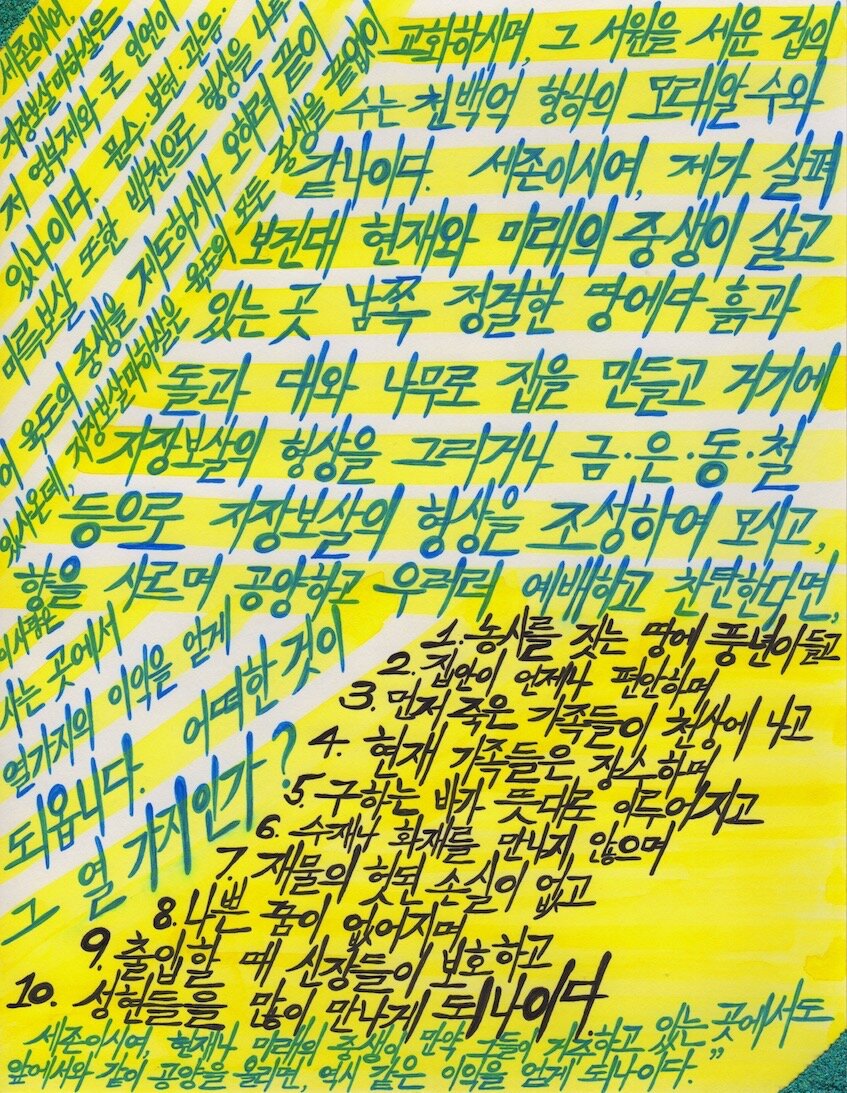 세존이시여,
지장보살마하살은
저 염부제와 큰 인연이
있나이다. 문수·보현·관음·
미륵보살 또한 백천으로 형상을 나투
어 육도의 중생을 제도하시나 오히려 끝이
있사온데, 지장보살마하살은 육도의 모든 중생을 끝없이
교화하시며, 그 서원을 세운 겁의
수는 천백억 항하의 모래알 수와
같나이다. 세존이시여, 제가 살펴
보건대 현재와 미래의 중생이 살고
있는 곳 남쪽 정결한 땅에다 흙과
돌과 대와 나무로 집을 만들고 거기에
지장보살의 형상을 그리거나 금·은·동·철
등으로 지장보살의 형상을 조성하여 모시고,
향을 사르며 공양하고 우러러 예배하고 찬탄한다면,
이 사람은
사는 곳에서
열가지의 이익을 얻게
되옵니다. 어떠한 것이
그 열 가지인가?
1. 농사를 짓는 땅에 풍년이 들고
2. 집안이 언제나 편안하며
3. 먼저 죽은 가족들이 천상에 나고
4. 현재 가족들은 장수하며
5. 구하는 바가 뜻대로 이루어지고
6. 수재나 화재를 만나지 않으며
7. 재물의 헛된 손실이 없고
8. 나쁜 꿈이 없어지며
9. 출입할 때 신장들이 보호하고
10. 성현들을 많이 만나게 되나이다.
세존이시여, 현재나 미래의 중생이 만약 그들이 거주하고 있는 곳에서도
앞에서와 같이 공양을 올리면, 역시 같은 이익을 얻게 되나이다.”